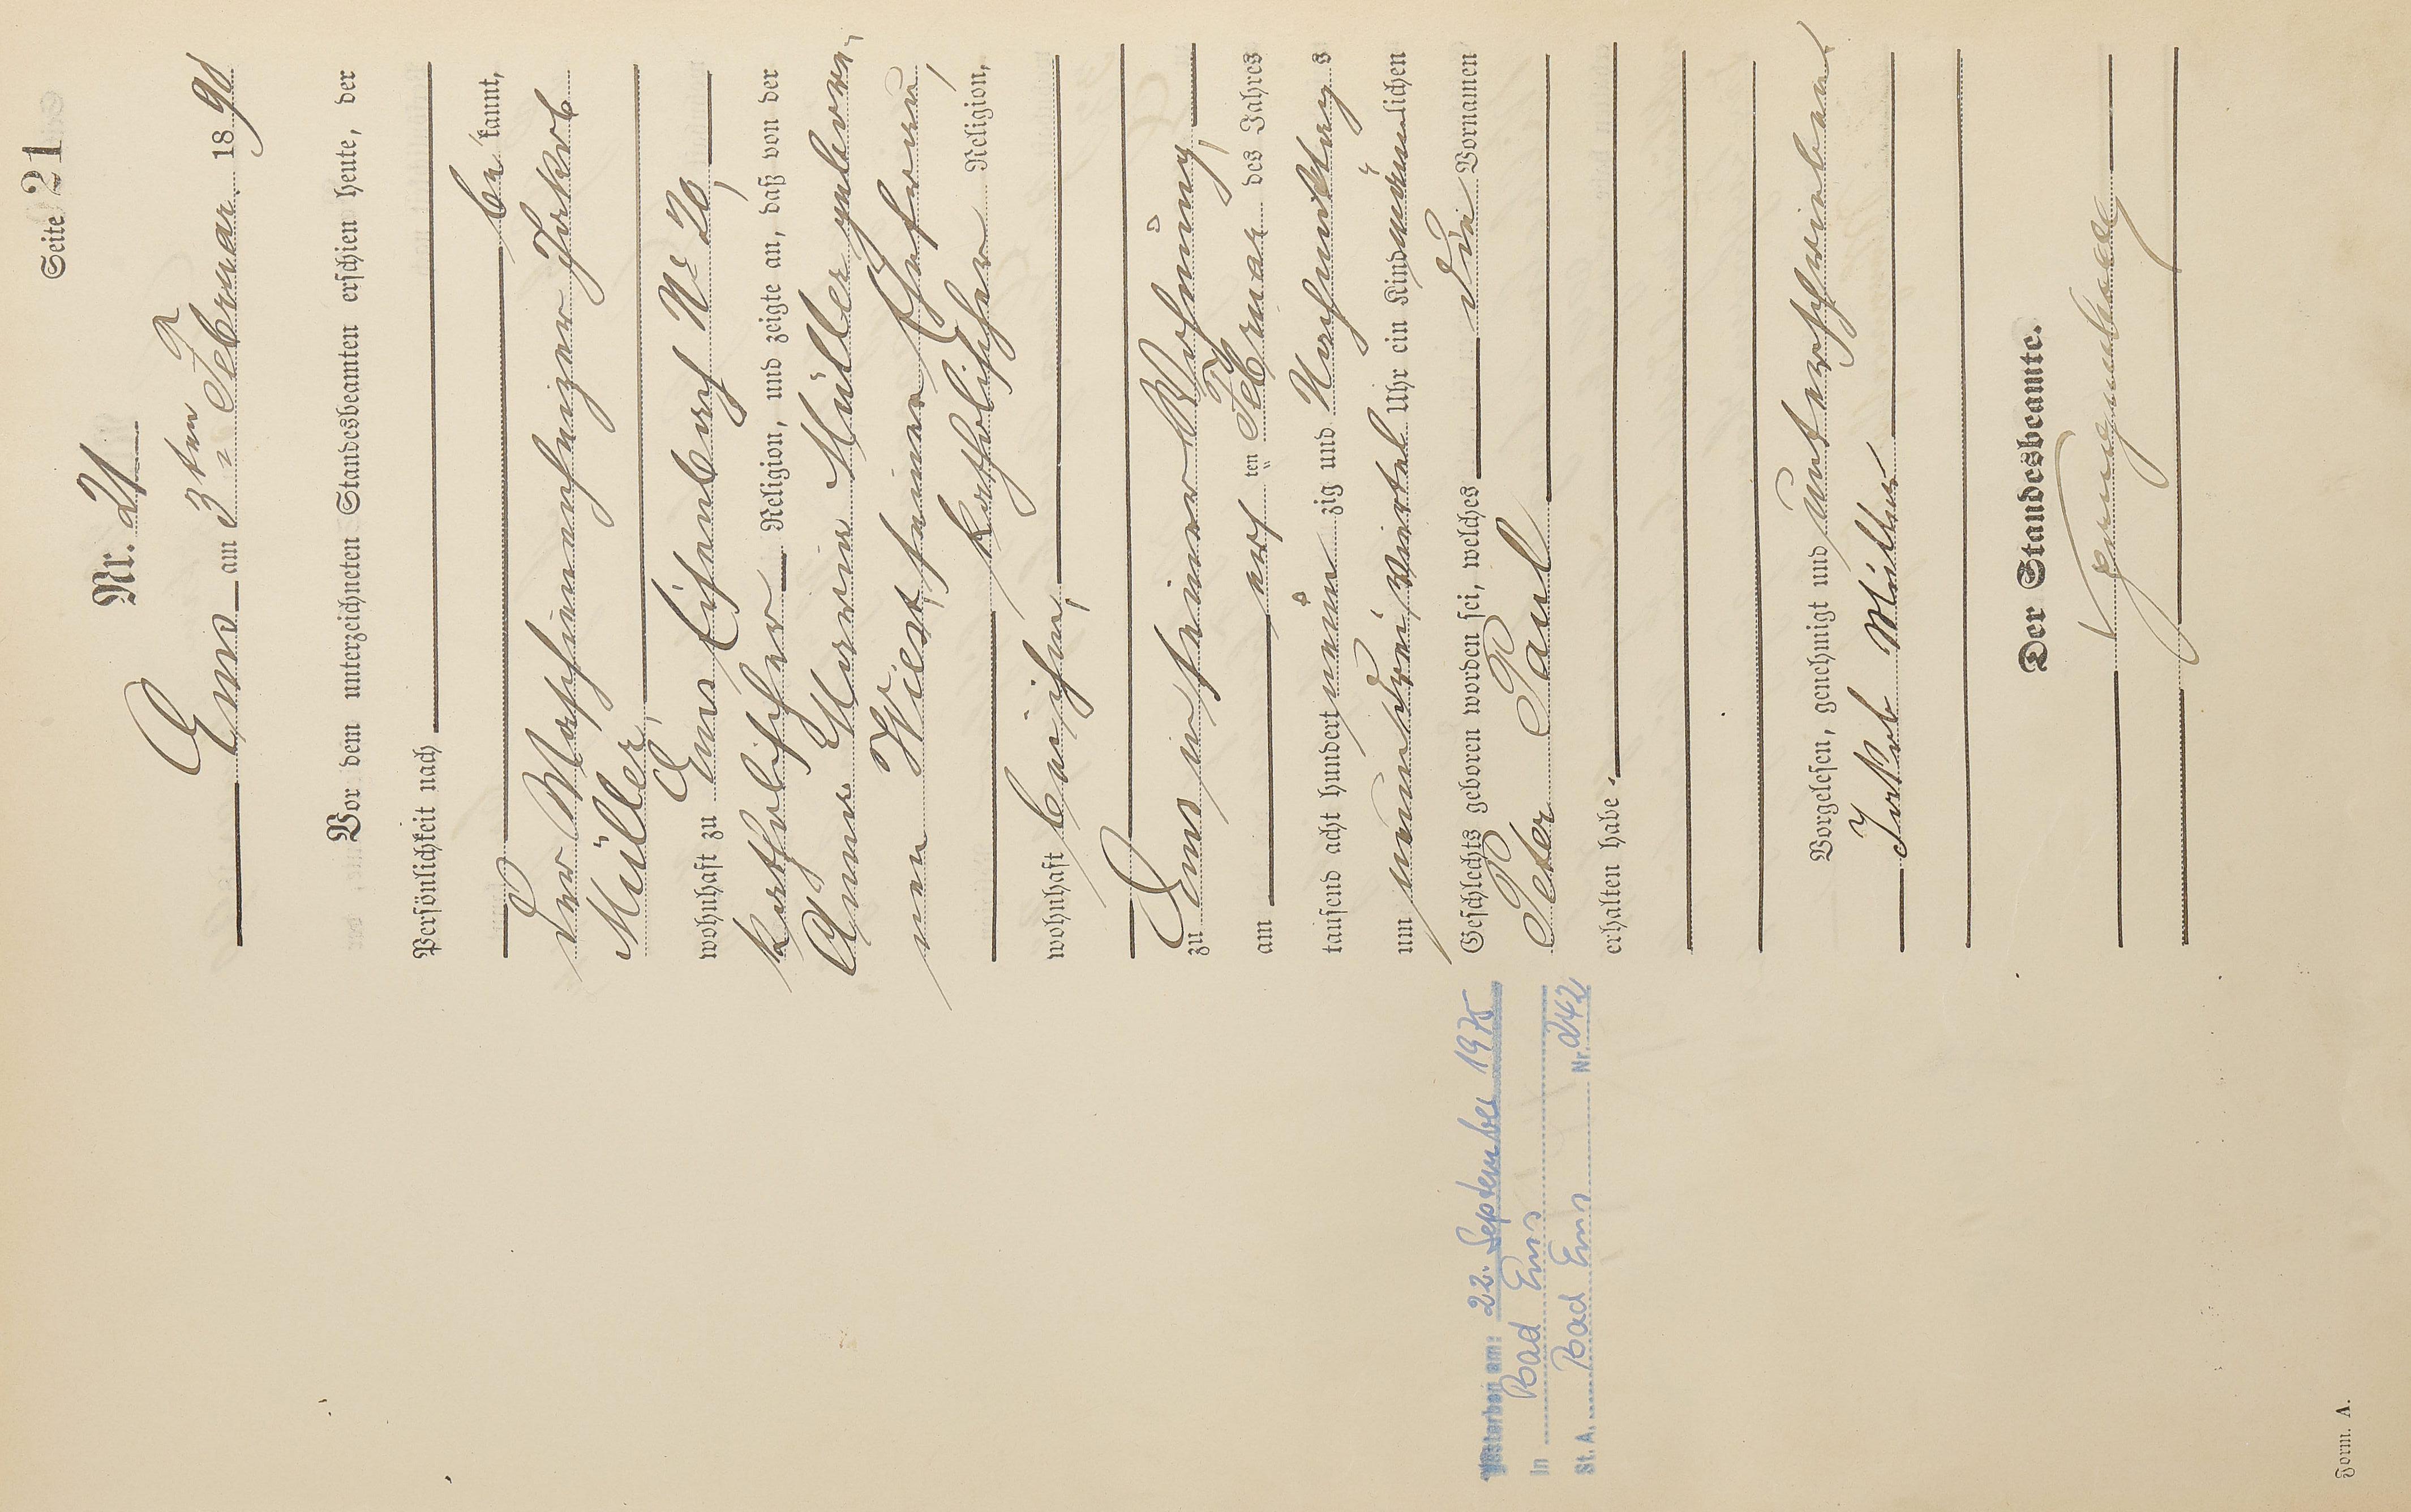 Seite 21
Nr. 21
Ems am 3ten Februar 1891
Vor dem unterzeichneten Standesbeamten erschien heute, der
Persönlichkeit nach
be kannt,
der Maschinenheizer Jakob
Müller,
wohnhaft zu Ems Eisenbach No 20,
katholischer Religion, und zeigte an, daß von der
Anna Maria Müller gebore-
nen Wilest, seiner Ehefrau,
katholischer Religion,
wohnhaft bei ihm,
zu Ems in seiner Wohnung,
am ten Februar des Jahres
tausend acht hundert neun zig und Nachmittags
um neun drei viertel Uhr ein Kind männlichen
Geschlechts geboren worden sei, welches die Vornamen
Peter Paul
erhalten habe.
Vorgelesen, genehmigt und unterschrieben
Jakob Müller
Der Standesbeamte.
Gestorben am: 22. September 1975
In Bad Ems
St. A. Bad Ems Nr. 242
Form. A.